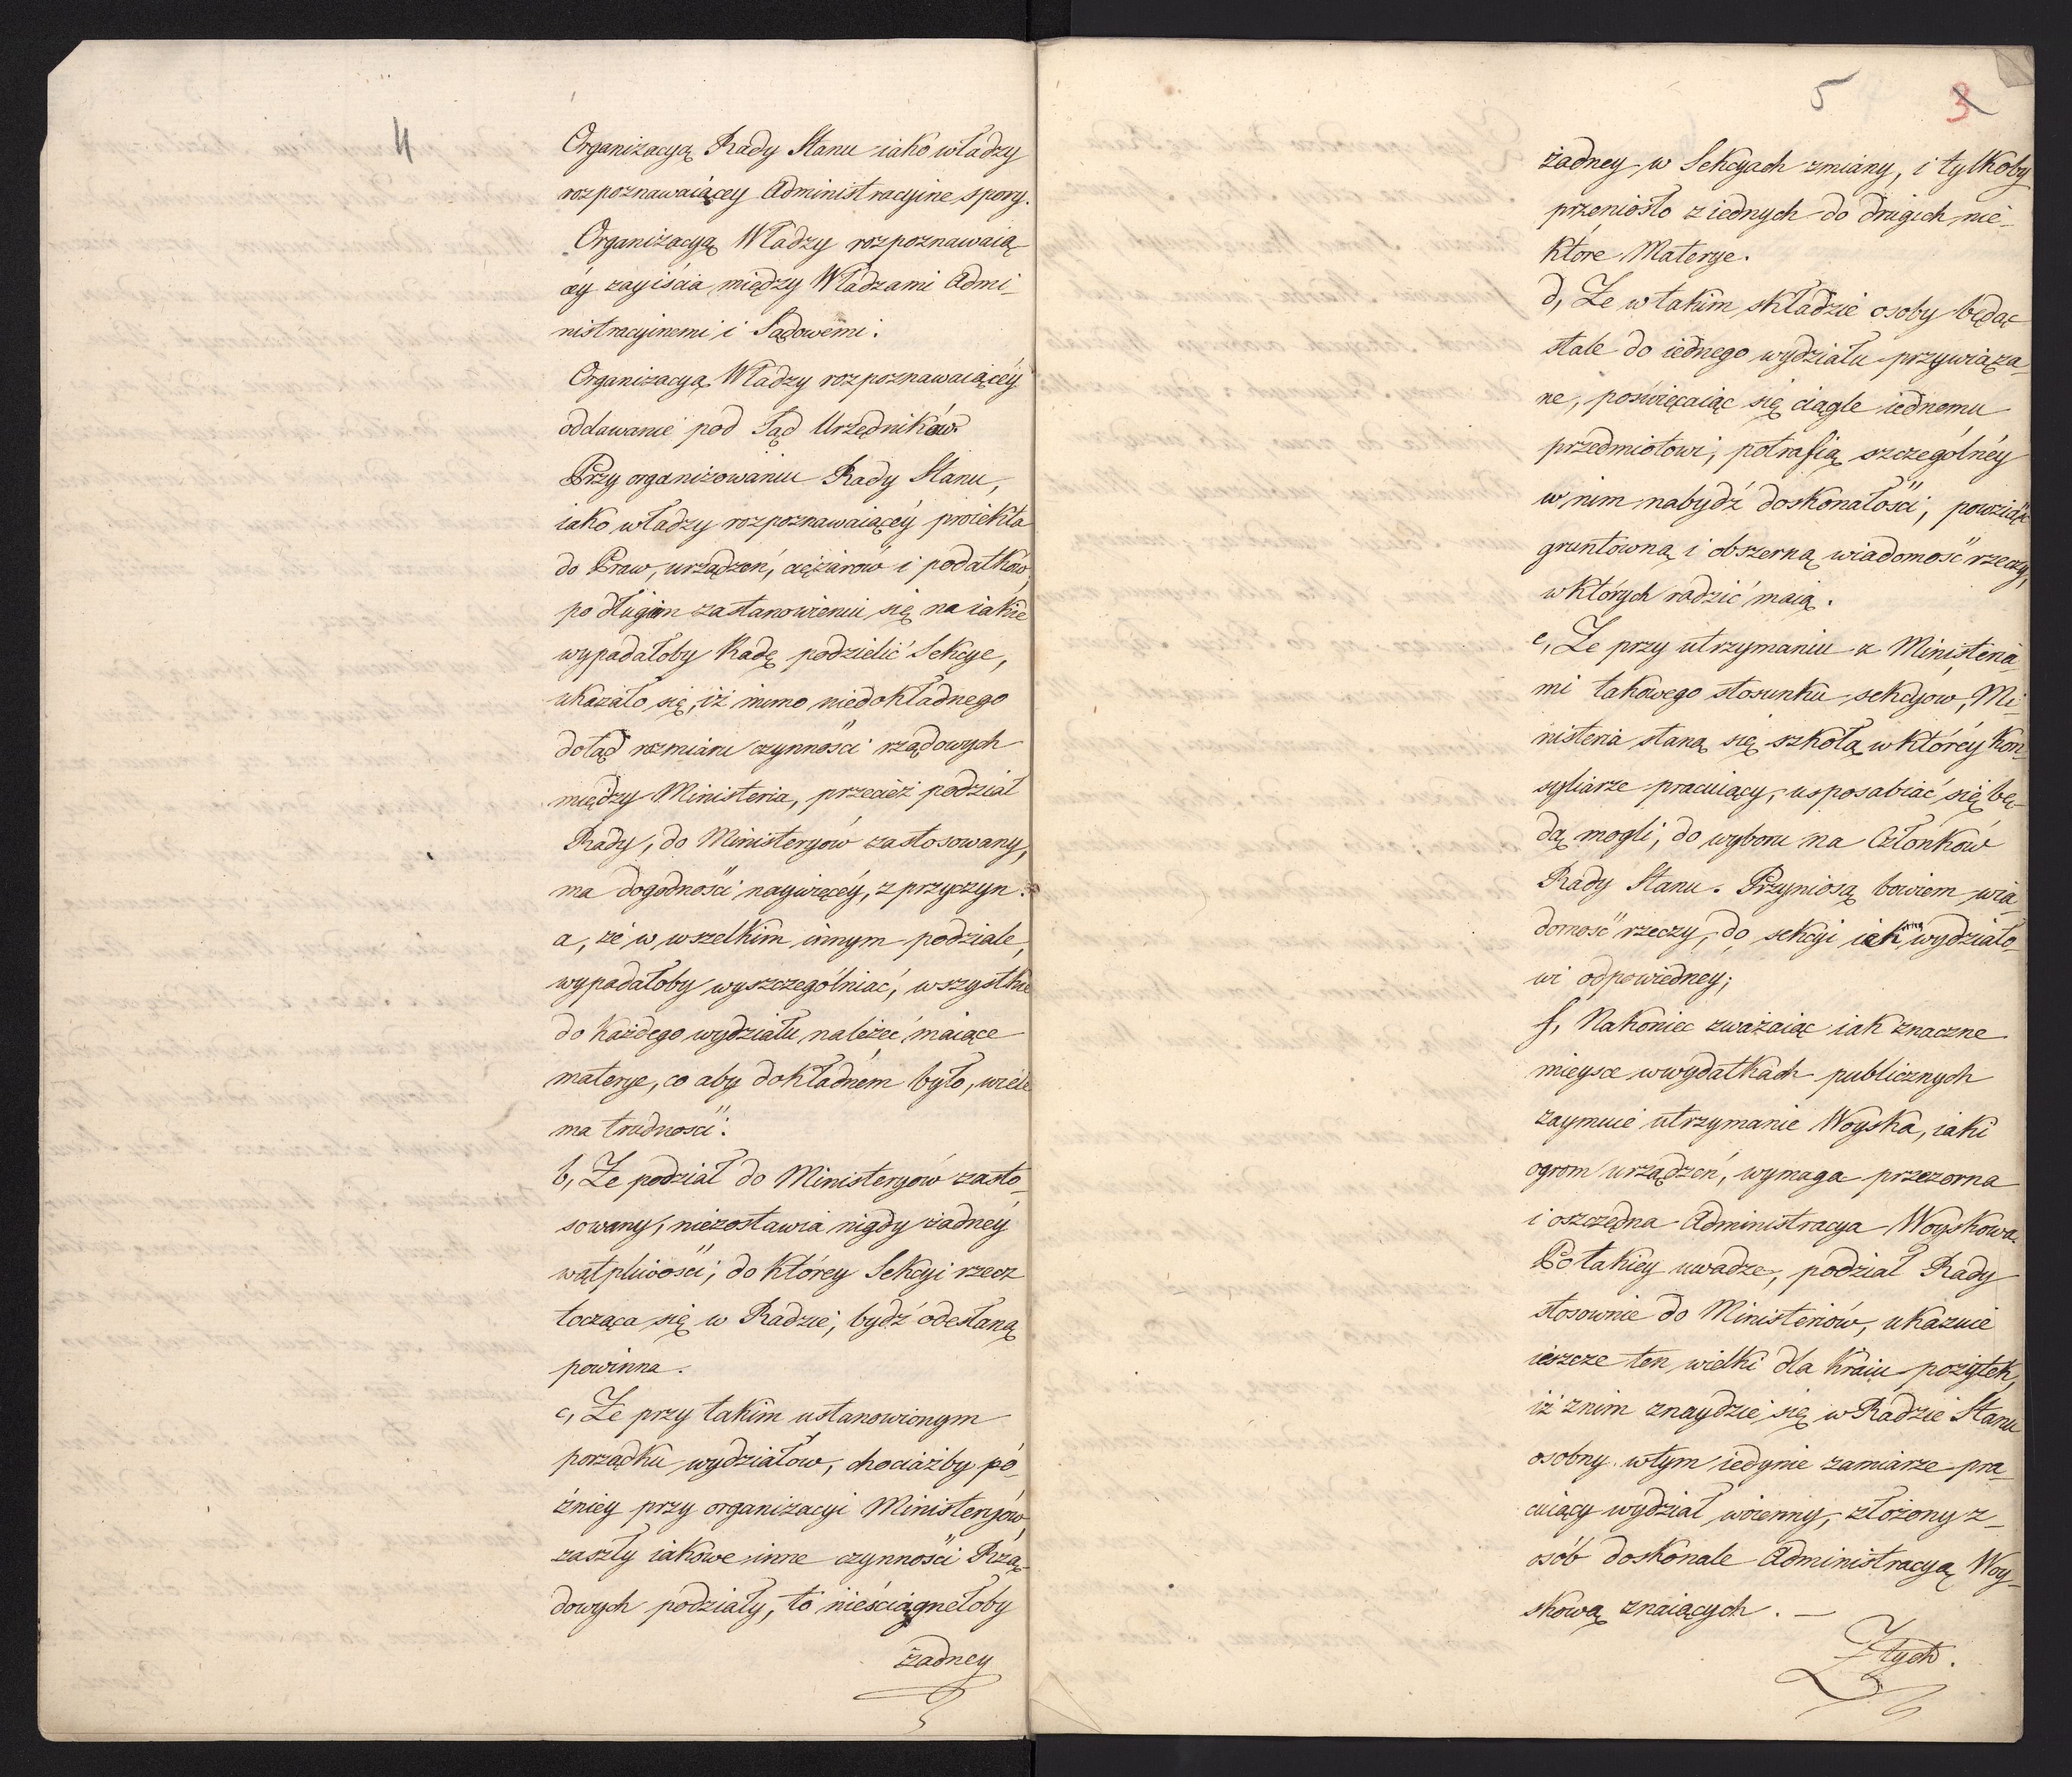 4
Organizacyą Rady Stanu iako władzy
rozpoznawaiącey Administracyine spory.
Organizacyą Władzy rozpoznawaią-
céy zayiścia między Władzami Admi-
nistracyinemi i Sądowemi.
Organizacyą Władzy rozpoznawaiącéy
oddawanie pod Sąd Urzędników.
Przy organizowaniu Rady Stanu,
iako władzy rozpoznawaiącéy proiekta
do Praw, urządzeń, ciężarów i podatków,
po długim zastanowieniu się na iakie
wypadałoby Radę podzielić Sekcye,
ukazało się, iż mimo niedokładnego
dotąd rozmiaru czynności rządowych
między Ministeria, przecież podział
Rady, do Ministeryów zastosowany,
ma dogodności naywięcéy, z przyczyn.
a, że w wszelkim innym podziale,
wypadałoby wyszczególniać, wszystkie
do każdego wydziału należeć maiące
materye, co aby dokładném było, wiele
ma trudności.
b, Że podział do Ministeryów zasto-
sowany, niezostawia nigdy żadnéy
wątpliwości, do którey Sekcyi rzecz
tocząca się w Radzie, bydź odesłaną
powinna.
c, Że przy takim ustanowionym
porządku wydziałów, chociażby pó-
źniey przy organizacyi Ministeryów,
zaszły iakowe inne czynności Rzą-
dowych podziały, to nieściągnełoby
żadney
5 3
żadney w Sekcyach zmiany, i tylkoby
przeniosło z iednych do drugich nie-
które Materye.
d, Że w takim składzie osoby będąc
stale do iednego wydziału przywiąza-
ne, poświęcaiąc się ciągle iednemu
przedmiotowi, potrafią szczególnéy
w nim nabydź doskonałości, powziąść
gruntowną i obszerną wiadomość rzeczy,
w których radzić maią.
e, Że przy utrzymaniu z Ministeria-
mi takowego stosunku sekcyów, Mi-
nisteria staną się szkołą w któréy Kon-
syliarze pracuiący, usposabiać się bę-
dą mogli, do wyboru na Członków
Rady Stanu. Przyniosą bowiem wia-
domość rzeczy, do sekcyi iak wydziało-
wi odpowiedney;
f, Nakoniec zważaiąc iak znaczne
mieysce w wydatkach publicznych
zaymuie utrzymanie Woyska, iaki
ogrom urządzeń, wymaga przezorna
i oszczędna Administracya Woyskowa.
Po takiey uwadze, podział Rady
stosownie do Ministeriów, ukazuie
ieszcze ten wielki dla kraiu pożytek,
iż z nim znaydzie się w Radzie Stanu
osobny w tym iedynie zamiarze pra-
cuiący wydział woienny, złożony z
osób doskonale Administracyą Woy-
skową znaiących. —
Z tych.